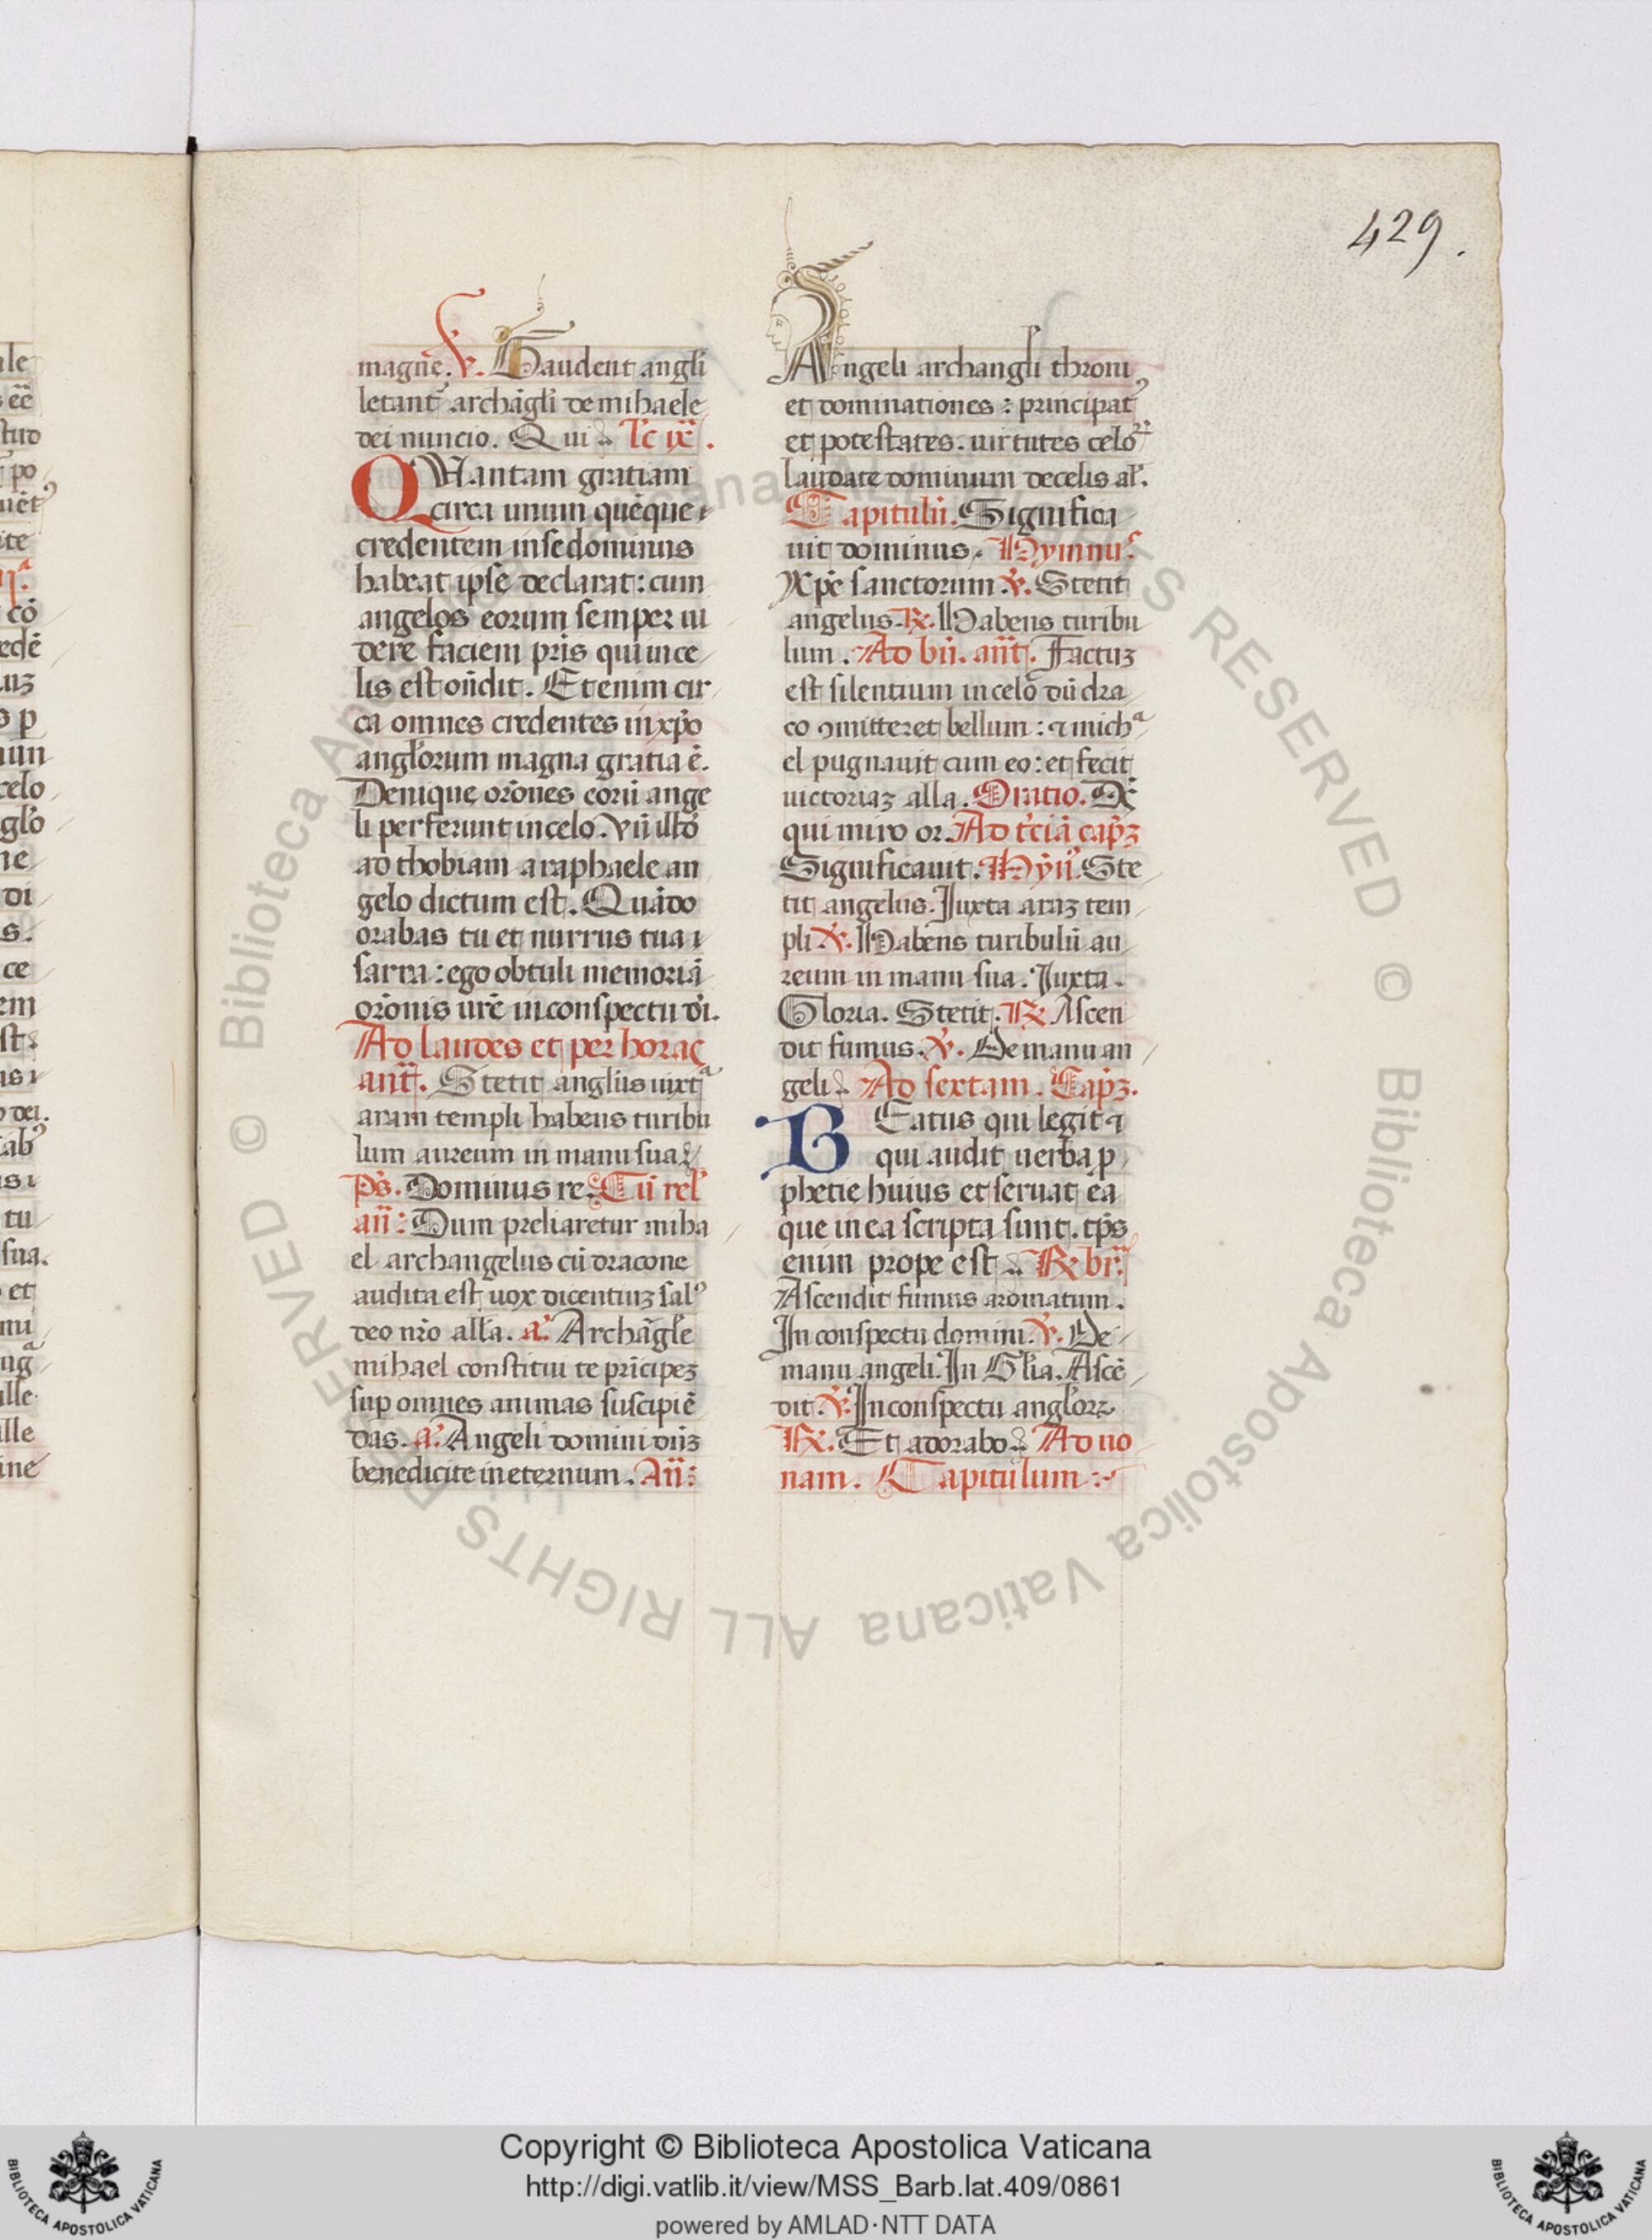 429.
magnę. v. Gaudent angli
letant᷑ archāgli de mihaele
dei nuncio. Qui. lc̄ ix.
QUantam gratiam
circa unum quēque
credentem in se dominus
habeat ipse declarat: cum
angelos eorum semper ui
dere faciem pr̄is qui in ce
lis est on̄dit. Etenim cir
ca omnes credentes in xp̄o
angl'orum magna gratia ē.
Denique or̄ones eorū ange
li perferunt in celo. Vn̄ illđ
ad thobiam a raphaele an
gelo dictum est. Quādo
orabas tu et nurrus tua
sarra: ego obtuli memoriā
or̄onis ur̄e in conspectu dī.
Ad laudes et per horas
ant̄. Stetit angl'us iuxtᵃ
aram templi habens turibu
lum aureum in manu sua
p̄s. Dominus re. Cū rel'
an̄: Dum preliaretur miha
el archangelus cū dracone
audita est uox dicentiuꝫ salꝰ
deo nr̄o all'a. a. Archāgl'e
mihael constitui te prīcipeꝫ
sup omnes animas suscipiē
das. a. Angeli domini dn̄ꝫ
benedicite in eternum. An̄:
Angeli archangl'i throni
et dominationes: principatꝰ
et potestates. uirtutes celoꝝ
laudate dominum de celis al'.
Capitulū. Significa
uit dominus. Hymnuˢ
Xp̄e sanctorum v̄. Stetit
angelus. R. Habens turibu
lum. Ad bn̄. ant̄. Factuꝫ
est silentium in celo dū dra
co ꝯmitteret bellum: ⁊ michᵃ
el pugnauit cum eo: et fecit
uictoriaꝫ alla. Oratio. Ds̄
qui miro or. Ad t'ciā cap̄ꝫ
Significauit. Hȳn̄. Ste
tit angelus. Iuxta araꝫ tem
pli v̄. Habens turibulū au
reum in manu sua. Iuxta.
Gloria. Stetit. R. Ascen
dit fumus. v̄. De manu an
geli. Ad sextam. Cap̄ꝫ.
BEatus qui legit ⁊
qui audit uerba ꝓ
phetie huius et seruat ea
que in ea scripta sunt. tp̄s
enim prope est. R br̄.
Ascendit fumus aromatum.
In conspectu domini. v̄. De
manu angeli. In Gl'ia. Ascē
dit. v̄. In conspectu angl'oꝝ
R. Et adorabo. Ad no
nam. Capitulum
© Biblioteca Apostolica Vaticana ALL RIGHTS RESERVED © Biblioteca Apostolica Vaticana ALL RIGHTS RESERVED
Copyright © Biblioteca Apostolica Vaticana
http://digi.vatlib.it/view/MSS_Barb.lat.409/0861
powered by AMLAD·NTT DATA
BIBLIOTECA APOSTOLICA VATICANA
BIBLIOTECA APOSTOLICA VATICANA